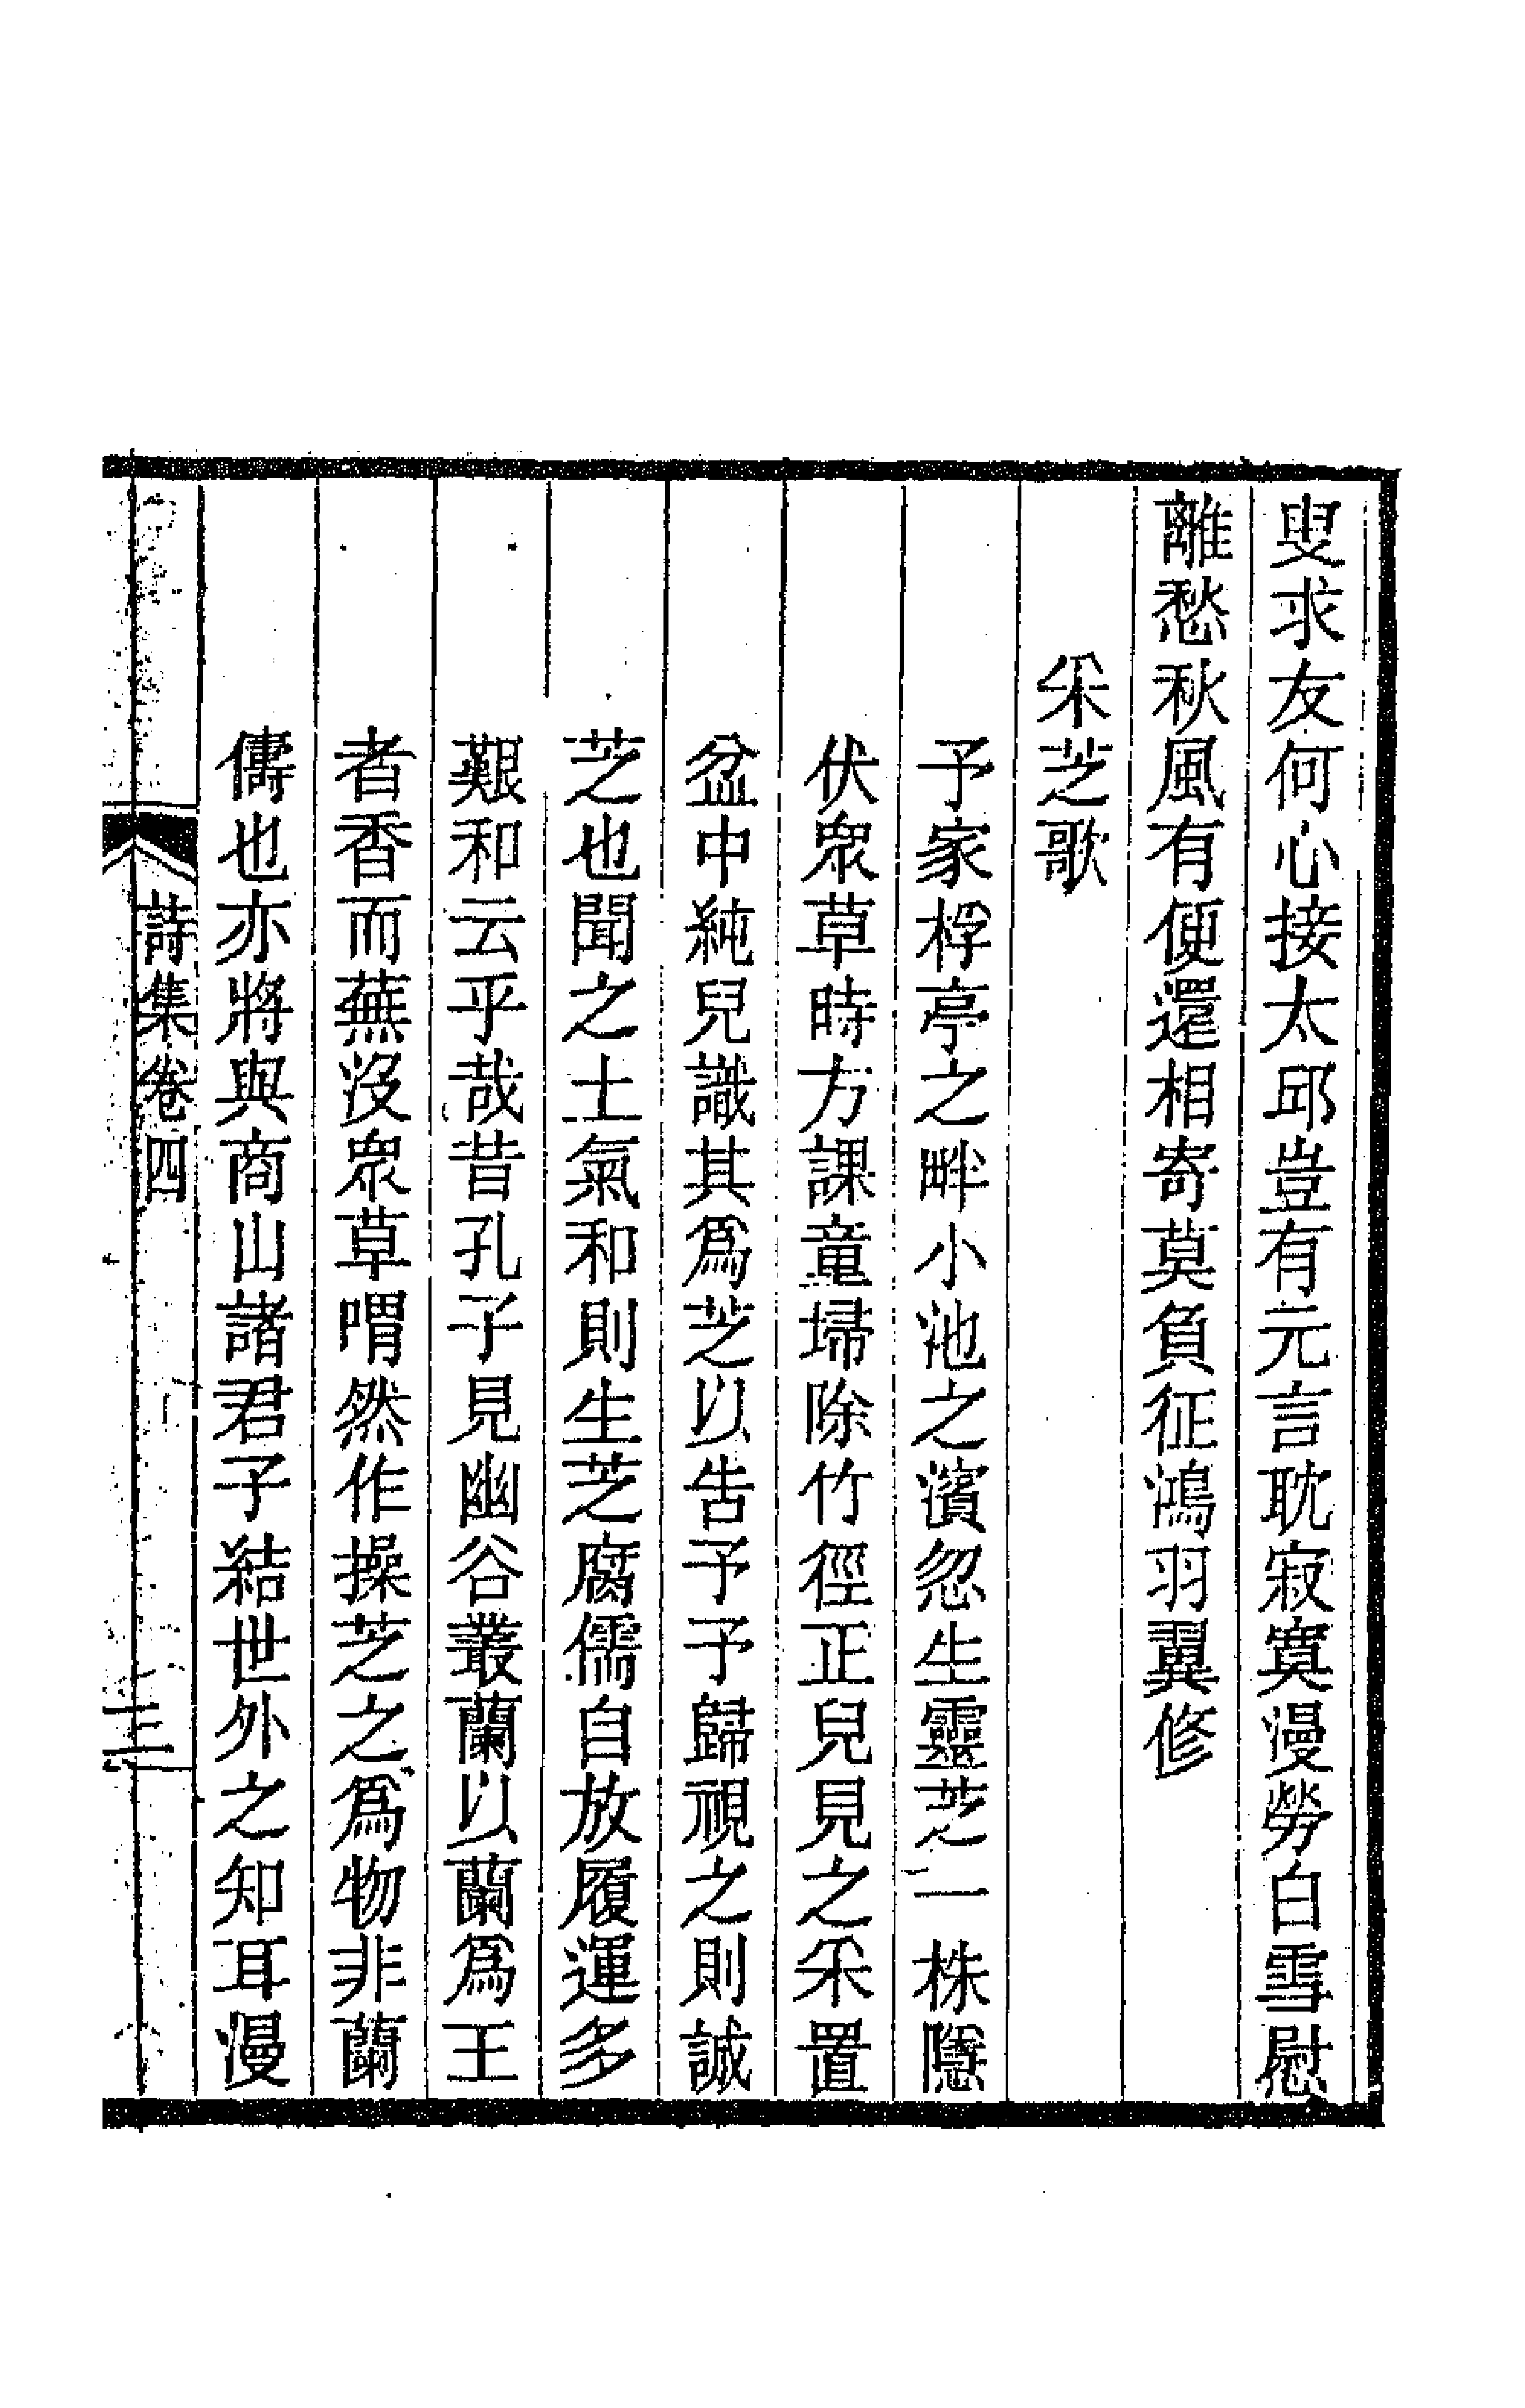 叟求友何心接太邱豈有元言耽寂寞漫勞白雪慰
離愁秋風有便還相寄莫負征鴻羽翼修
采芝歌
予家桴亭之畔小池之濱忽生靈芝一株隱
伏衆草時方課童埽除竹徑正兒見之采置
盆中純兒識其爲芝以告予予歸視之則誠
芝也聞之土氣和則生芝腐儒自放履運多
艱和云乎哉昔孔子見幽谷叢蘭以蘭爲王
者香而蕪沒衆草喟然作操芝之爲物非蘭
儔也亦將與商山諸君子結世外之知耳漫
詩集卷四
三